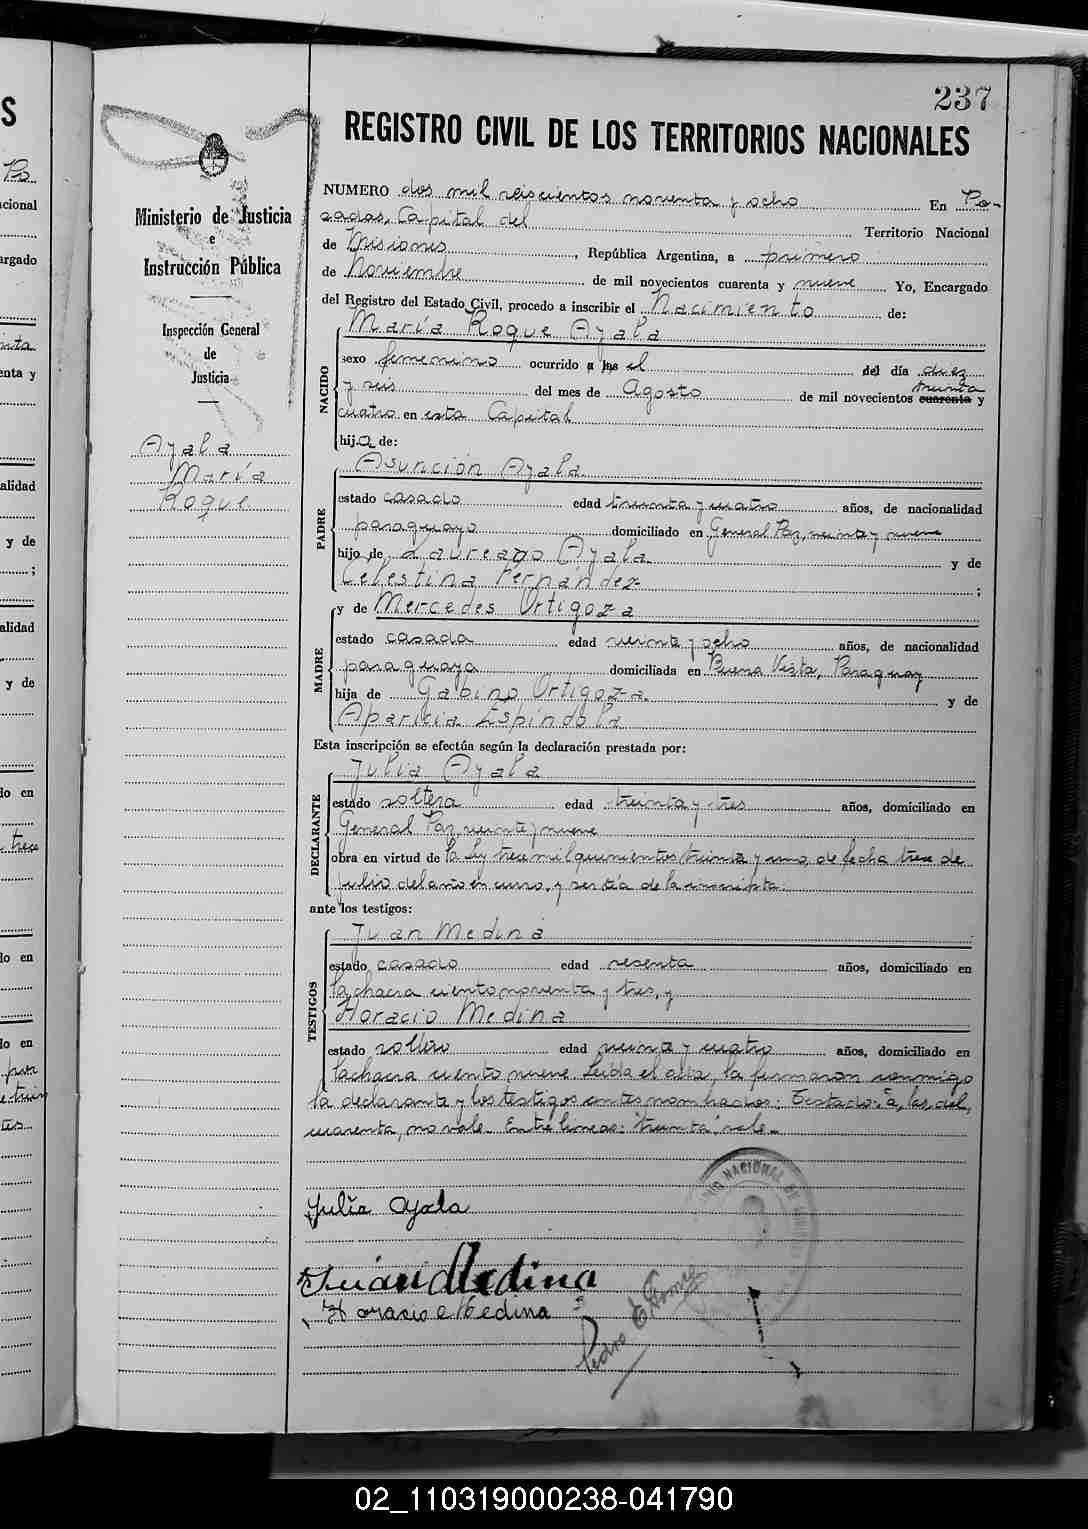 237
REGISTRO CIVIL DE LOS TERRITORIOS NACIONALES
Ministerio de Justicia
e
Instrucción Pública
Inspección General
de
Justicia
Ayala
María
Roque
NUMERO dos mil seiscientos noventa y ocho En Po-
sadas, Capital del Territorio Nacional
de Misiones, República Argentina, a primero
de Noviembre de mil novecientos cuarenta y nueve Yo, Encargado
del Registro del Estado Civil, procedo a inscribir el Nacimiento de:
María Roque Ayala
NACIDO
sexo femenino ocurrido a las el del día diez
y seis del mes de Agosto de mil novecientos cuarenta treinta y
cuatro en esta Capital
hija de:
Asunción Ayala
PADRE
estado casado edad treinta y cuatro años, de nacionalidad
paraguayo domiciliado en General Paz, veinte y nueve
hijo de Laureano Ayala y de
Celestina Fernández ;
y de Mercedes Ortigoza
MADRE
estado casada edad veinte y ocho años, de nacionalidad
paraguaya domiciliada en Buena Vista, Paraguay
hija de Gabino Ortigoza y de
Aparicia Espíndola
Esta inscripción se efectúa según la declaración prestada por:
Julia Ayala
DECLARANTE
estado soltera edad treinta y tres años, domiciliado en
General Paz, veinte y nueve
obra en virtud de la Ley trece mil quinientos treinta y uno, de fecha trece de
julio del año en curso, y ser tía de la inscripta.
ante los testigos:
Juan Medina
TESTIGOS
estado casado edad sesenta años, domiciliado en
la chacra ciento noventa y tres, y
Horacio Medina
estado soltero edad veinte y cuatro años, domiciliado en
la chacra ciento nueve. Leída el acta, la firmaron conmigo
la declarante y los testigos antes nombrados: Testado: "a, las, del,
cuarenta, no vale. Entre líneas: "treinta", vale.
Julia Ayala
Juan Medina
Horacio Medina
02_110319000238-041790